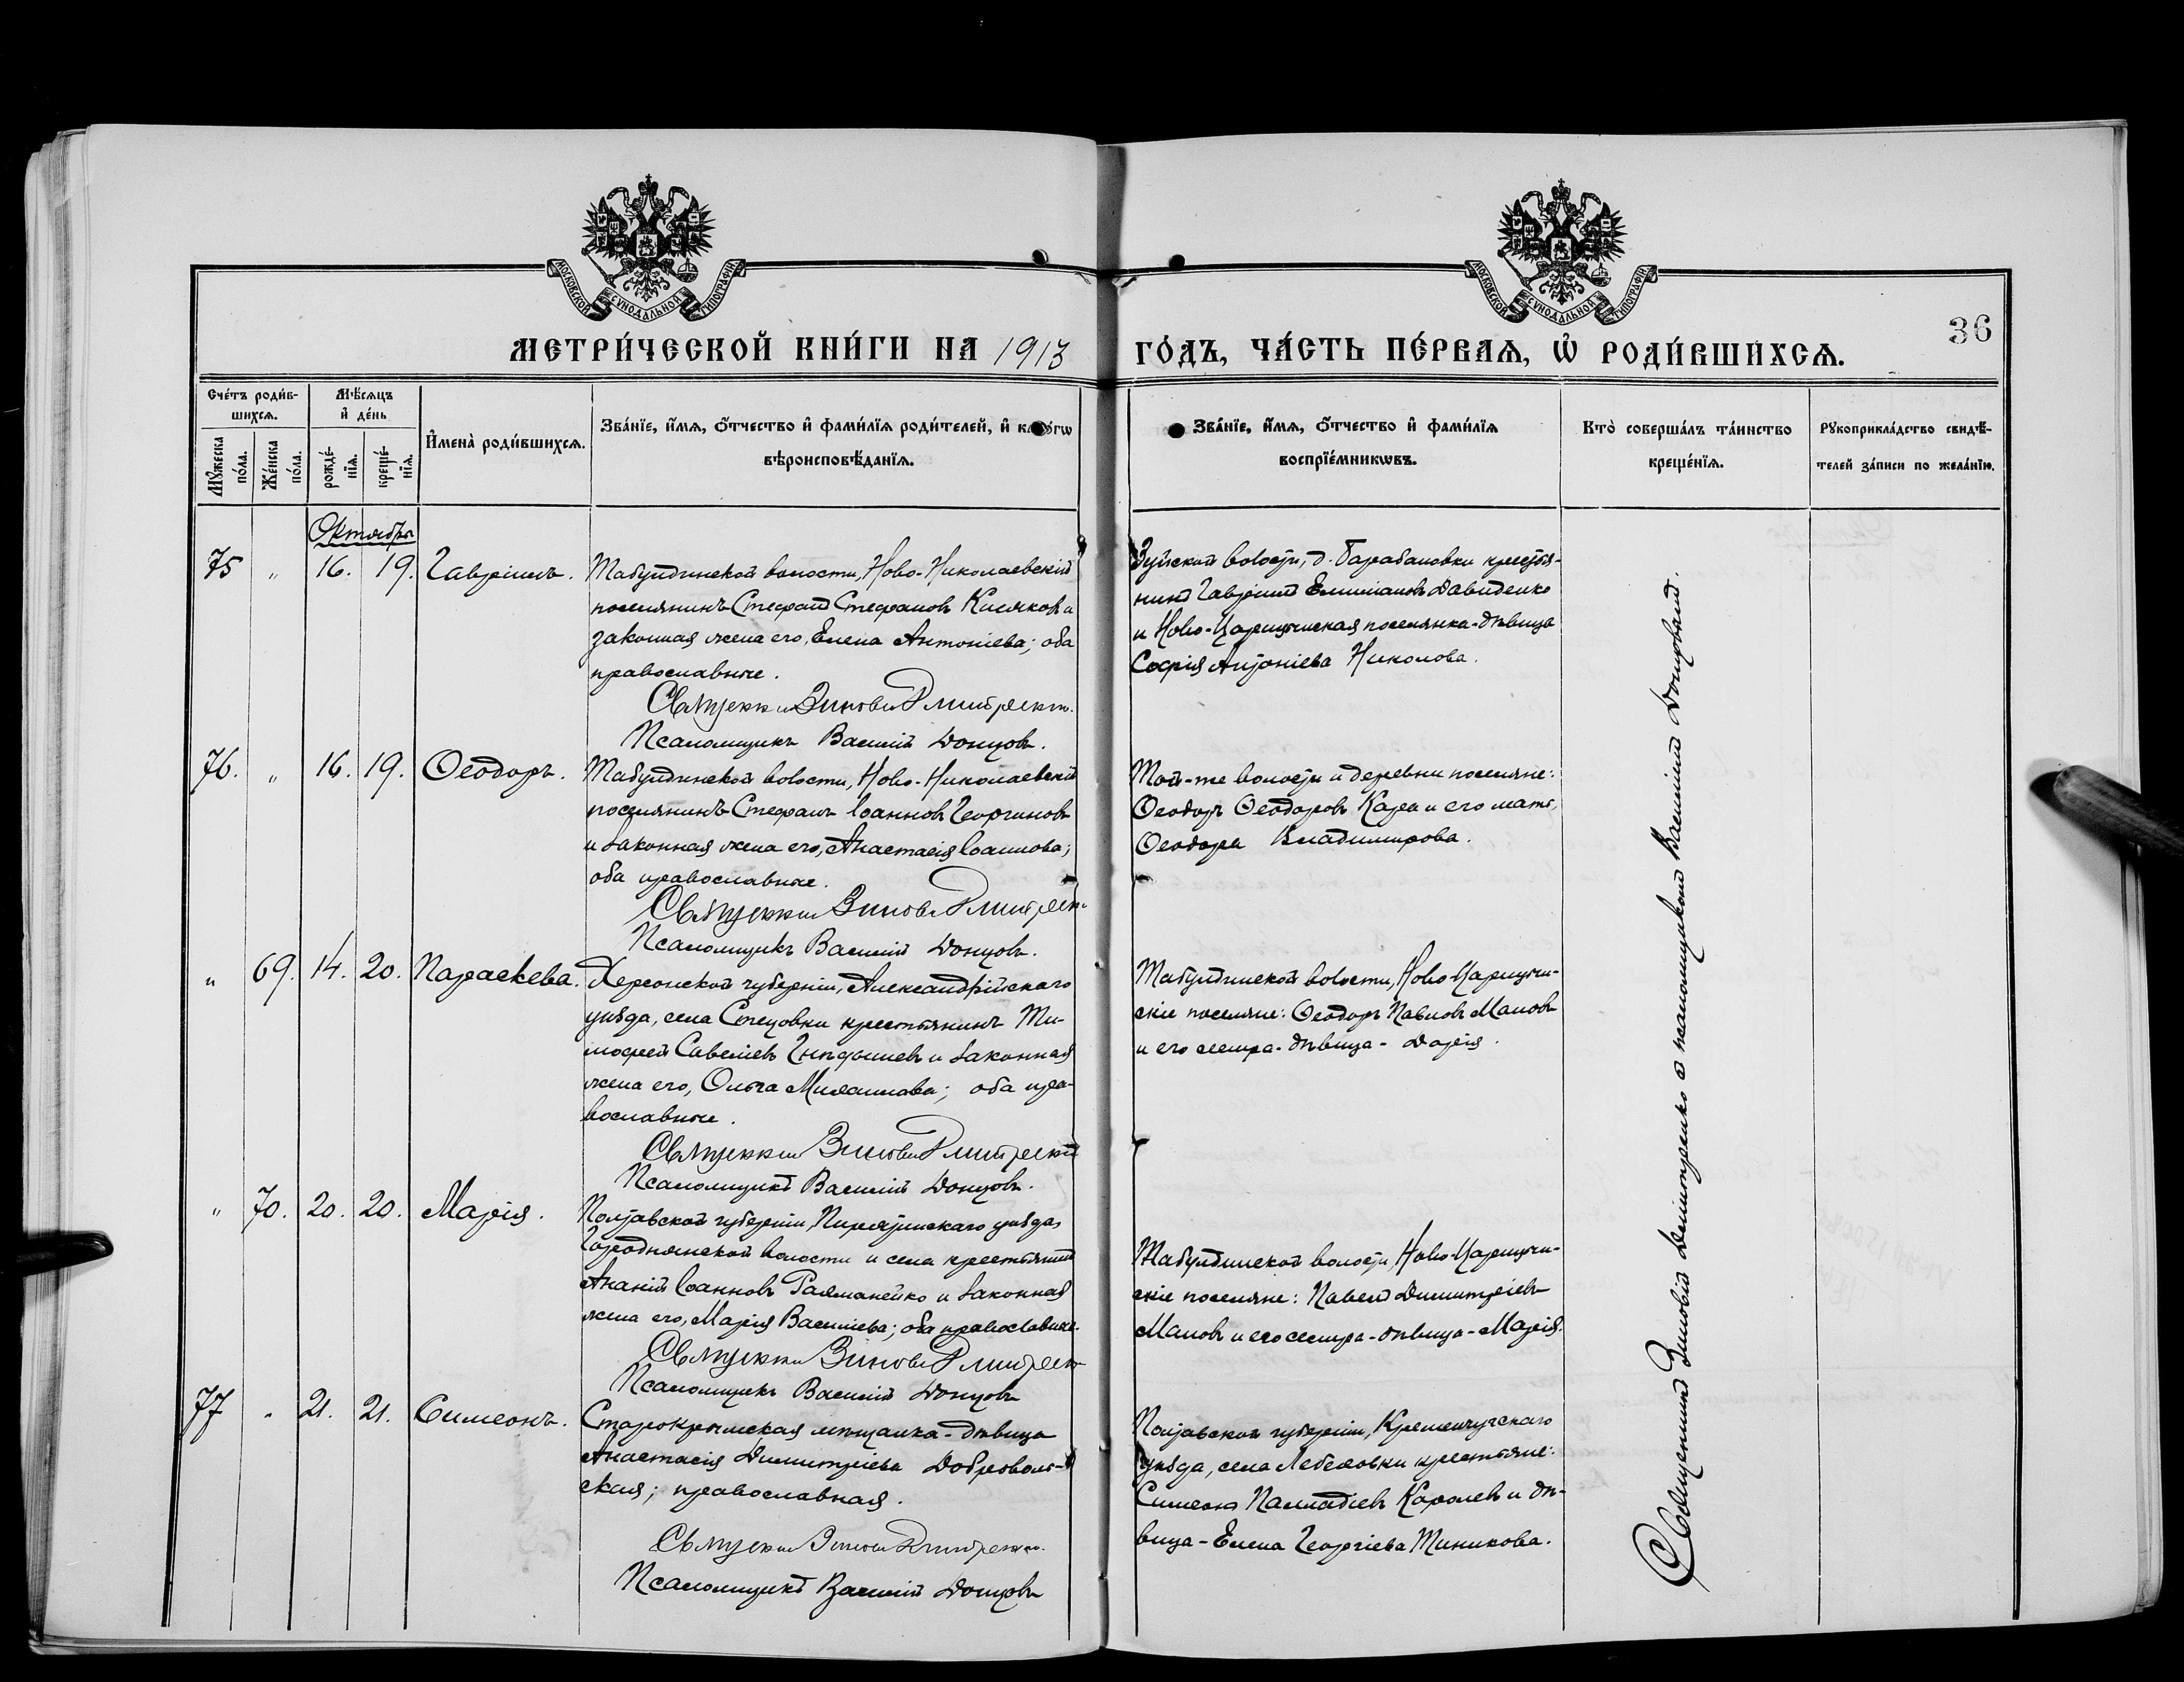 МОСКОВСКОЙ СѴНОДАЛЬНОЙ ТИПОГРАФІИ
МОСКОВСКОЙ СѴНОДАЛЬНОЙ ТИПОГРАФІИ
36
МЕТРИ́ЧЕСКОЙ КНИ́ГИ НА 1913 ГО́ДЪ, ЧА́СТЬ ПЕ́РВАѦ, Ѡ РОДИ́ВШИХСѦ.
Сче́тъ роди́в-
шихсѧ.
Мѣ́сѧцъ
и де́нь
Мꙋ́жеска по́ла.
Же́нска по́ла.
рожде́-
нїѧ.
креще́-
нїѧ.
И́мена роди́вшихсѧ.
Зва́нїе, и́мѧ, о́тчество и фами́лїѧ роди́телей, и
вѣроисповѣ́данїѧ.
Зва́нїе, и́мѧ, о́тчество и фами́лїѧ
воспрїе́мникѡвъ.
Кто̀ соверша́лъ та́инство
креще́нїѧ.
Рꙋкоприкла́дство свидѣ́-
телей за́писи по жела́нїю.
Октябрь
75 " 16. 19. Гавріилъ.
Табулдинской волости, Ново-Николаевскій
поселянинъ Стефанъ Стефановъ Кисяковъ и
законная жена его, Елена Антоніева; оба
православные.
Священникъ Зиновій Димитренко.
Псаломщикъ Василій Донцовъ.
Зуйской волости, д. Барабановки крестья-
нинъ Гавріилъ Емиліановъ Давиденко
и Ново-Царицынская поселянка-дѣвица
Софія Антоніева Николова.
76. " 16. 19. Ѳеодоръ.
Табулдинской волости, Ново-Николаевскій
поселянинъ Стефанъ Іоанновъ Георгиновъ
и законная жена его, Анастасія Іоаннова;
оба православные.
Священникъ Зиновій Димитренко
Псаломщикъ Василій Донцовъ.
Той-же волости и деревни поселяне:
Ѳеодоръ Ѳеодоровъ Кара и его мать,
Ѳеодора Владимирова.
" 69. 14. 20. Параскева.
Херсонской губерніи, Александрійскаго
уѣзда, села Стецовки крестьянинъ Ти-
моѳей Савеліевъ и законная
жена его, Ольга Михаилова; оба пра-
вославные.
Священникъ Зиновій Димитренко
Псаломщикъ Василій Донцовъ.
Табулдинской волости, Ново-Царицын-
скіе поселяне: Ѳеодоръ Павловъ Мановъ
и его сестра-дѣвица-Дарія.
" 70. 20. 20. Марія.
Полтавской губерніи, Пирятинскаго уѣзда,
Городнянской волости и села крестьянинъ
Ананій Іоанновъ и законная
жена его, Марія Василіева; оба православные.
Священникъ Зиновій Димитренко
Псаломщикъ Василій Донцовъ
Табулдинской волости, Ново-Царицын-
скіе поселяне: Павелъ Димитріевъ
Мановъ и его сестра-дѣвица-Марія.
77 " 21. 21. Симеонъ.
Старокрымская мѣщанка-дѣвица
Анастасія Димитріева Доброволь-
ская; православная.
Священникъ Зиновій Димитренко.
Псаломщикъ Василій Донцовъ
Полтавской губерніи, Кременчугскаго
уѣзда, села крестьяне:
Симеонъ Палладіевъ Королевъ и дѣ-
вица-Елена Георгіева Миникова.
Священникъ Зиновій Димитренко с псаломщикомъ Василіемъ Донцовымъ.